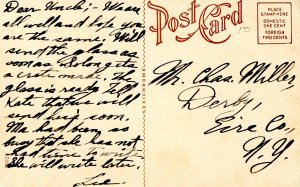 Dear Uncle:- We are
all well and hope you
are the same. Will
send the glass as
soon as Belong gets
a crate made. The
glass is ready. Tell
Kate that we will
send hers soon.
Ma had been so
busy that she has not
had time to write
She will write later.
Lee.
Post Card
PLACE
STAMP HERE
DOMESTIC
ONE CENT
FOREIGN
TWO CENTS
SEXICHROME
Mr. Chas. Miller,
Derby,
Erie Co.,
N.Y.